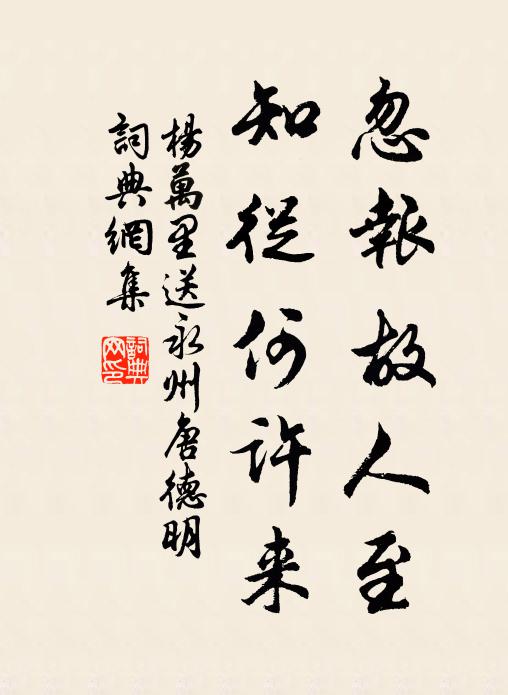 忽報故人至
知從何許来
楊萬里送永州唐德明
詞典網集
詞典網印